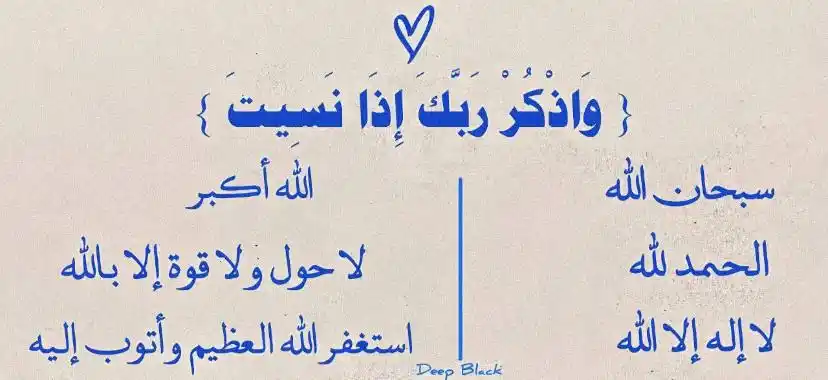 { وَاذْكُرْ رَبَّكَ إِذَا نَسِيتَ }
سبحان الله
الحمد لله
لا إله إلا الله
الله أكبر
لا حول ولا قوة إلا بالله
استغفر الله العظيم وأتوب إليه
Deep Black